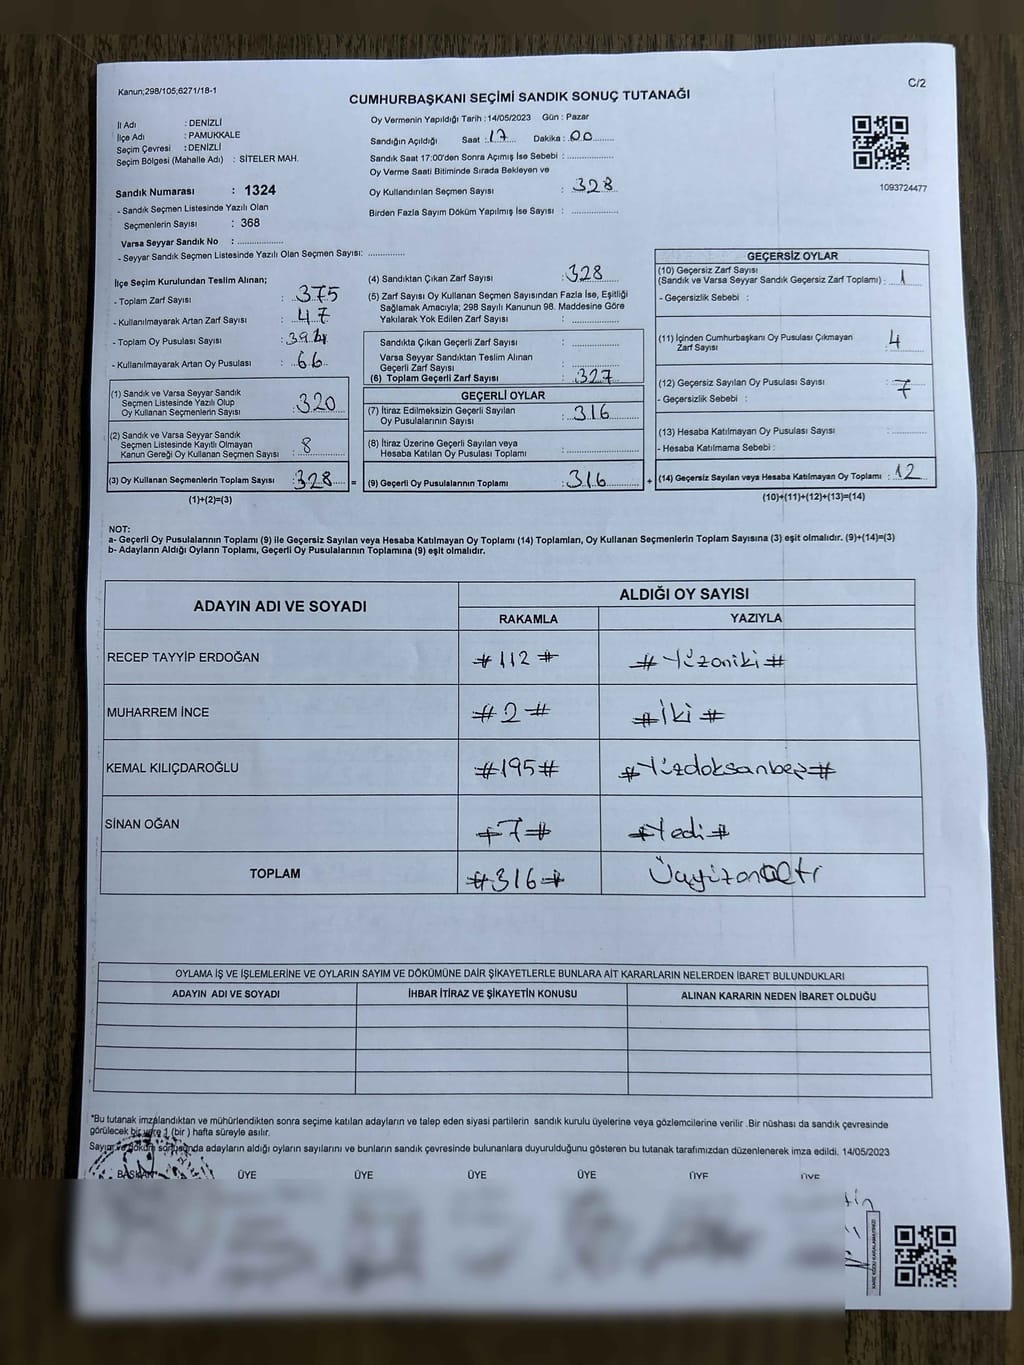 Kanun;298/105,6271/18-1
C/2
CUMHURBAŞKANI SEÇİMİ SANDIK SONUÇ TUTANAĞI
İl Adı : DENİZLİ
İlçe Adı : PAMUKKALE
Seçim Çevresi : DENİZLİ
Seçim Bölgesi (Mahalle Adı) : SİTELER MAH.
Sandık Numarası : 1324
- Sandık Seçmen Listesinde Yazılı Olan
Seçmenlerin Sayısı : 368
Varsa Seyyar Sandık No : ...............
- Seyyar Sandık Seçmen Listesinde Yazılı Olan Seçmen Sayısı: ............
Oy Vermenin Yapıldığı Tarih : 14/05/2023 Gün : Pazar
Sandığın Açıldığı Saat : 17 Dakika : 00
Sandık Saat 17:00'den Sonra Açımış İse Sebebi : ...............
Oy Verme Saati Bitiminde Sırada Bekleyen ve
Oy Kullandırılan Seçmen Sayısı : 328
Birden Fazla Sayım Döküm Yapılmış İse Sayısı : ...............
1093724477
İlçe Seçim Kurulundan Teslim Alınan;
- Toplam Zarf Sayısı : 375
- Kullanılmayarak Artan Zarf Sayısı : 47
- Toplam Oy Pusulası Sayısı :
- Kullanılmayarak Artan Oy Pusulası : 66
(1) Sandık ve Varsa Seyyar Sandık
Seçmen Listesinde Yazılı Olup
Oy Kullanan Seçmenlerin Sayısı : 320
(2) Sandık ve Varsa Seyyar Sandık
Seçmen Listesinde Kayıtlı Olmayan
Kanun Gereği Oy Kullanan Seçmen Sayısı : 8
(3) Oy Kullanan Seçmenlerin Toplam Sayısı : 328 =
(1)+(2)=(3)
(4) Sandıktan Çıkan Zarf Sayısı : 328
(5) Zarf Sayısı Oy Kullanan Seçmen Sayısından Fazla İse, Eşitliği
Sağlamak Amacıyla; 298 Sayılı Kanunun 98. Maddesine Göre
Yakılarak Yok Edilen Zarf Sayısı : ...............
Sandıkta Çıkan Geçerli Zarf Sayısı : ...............
Varsa Seyyar Sandıktan Teslim Alınan
Geçerli Zarf Sayısı : ...............
(6) Toplam Geçerli Zarf Sayısı : 327
GEÇERLİ OYLAR
(7) İtiraz Edilmeksizin Geçerli Sayılan
Oy Pusulalarının Sayısı : 316
(8) İtiraz Üzerine Geçerli Sayılan veya
Hesaba Katılan Oy Pusulası Toplamı : ...............
(9) Geçerli Oy Pusulalarının Toplamı : 316 +
GEÇERSİZ OYLAR
(10) Geçersiz Zarf Sayısı
(Sandık ve Varsa Seyyar Sandık Geçersiz Zarf Toplamı) : 1
- Geçersizlik Sebebi :
(11) İçinden Cumhurbaşkanı Oy Pusulası Çıkmayan
Zarf Sayısı : 4
(12) Geçersiz Sayılan Oy Pusulası Sayısı : 7
- Geçersizlik Sebebi :
(13) Hesaba Katılmayan Oy Pusulası Sayısı : ...............
- Hesaba Katılmama Sebebi :
(14) Geçersiz Sayılan veya Hesaba Katılmayan Oy Toplamı : 12
(10)+(11)+(12)+(13)=(14)
NOT:
a- Geçerli Oy Pusulalarının Toplamı (9) ile Geçersiz Sayılan veya Hesaba Katılmayan Oy Toplamı (14) Toplamları, Oy Kullanan Seçmenlerin Toplam Sayısına (3) eşit olmalıdır. (9)+(14)=(3)
b- Adayların Aldığı Oyların Toplamı, Geçerli Oy Pusulalarının Toplamına (9) eşit olmalıdır.
ADAYIN ADI VE SOYADI
ALDIĞI OY SAYISI
RAKAMLA YAZIYLA
RECEP TAYYİP ERDOĞAN #112# #Yüzoniki#
MUHARREM İNCE #2# #İki#
KEMAL KILIÇDAROĞLU #195# #Yüzdoksanbeş#
SİNAN OĞAN #7# #Yedi#
TOPLAM #316# Üçyüzonaltı
OYLAMA İŞ VE İŞLEMLERİNE VE OYLARIN SAYIM VE DÖKÜMÜNE DAİR ŞİKAYETLERLE BUNLARA AİT KARARLARIN NELERDEN İBARET BULUNDUKLARI
ADAYIN ADI VE SOYADI İHBAR İTİRAZ VE ŞİKAYETİN KONUSU ALINAN KARARIN NEDEN İBARET OLDUĞU
*Bu tutanak imzalandıktan ve mühürlendikten sonra seçime katılan adayların ve talep eden siyasi partilerin sandık kurulu üyelerine veya gözlemcilerine verilir .Bir nüshası da sandık çevresinde
görülecek bir yere 1 (bir ) hafta süreyle asılır.
Sayım ve döküm sonucunda adayların aldığı oyların sayılarını ve bunların sandık çevresinde bulunanlara duyurulduğunu gösteren bu tutanak tarafımızdan düzenlenerek imza edildi. 14/05/2023
BAŞKAN ÜYE ÜYE ÜYE ÜYE ÜYE ÜYE